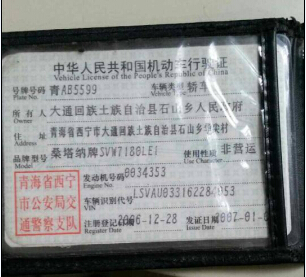 中华人民共和国机动车行驶证
Vehicle License of the People's Republic of China
号牌号码 青AB5599 车辆类型 轿车
Plate No.
所有人 大通回族土族自治县石山乡人民政府
Owner
住址 青海省西宁市大通回族土族自治县石山乡
Address
品牌型号 桑塔纳牌SVW7180LEI 使用性质 非营运
Model Use Character
青海省西宁
市公安局交
通警察支队
发动机号码 0034353
Engine No.
车辆识别代号
VIN
注册登记日期 2006-12-28 发证日期
Register Date Issue Date